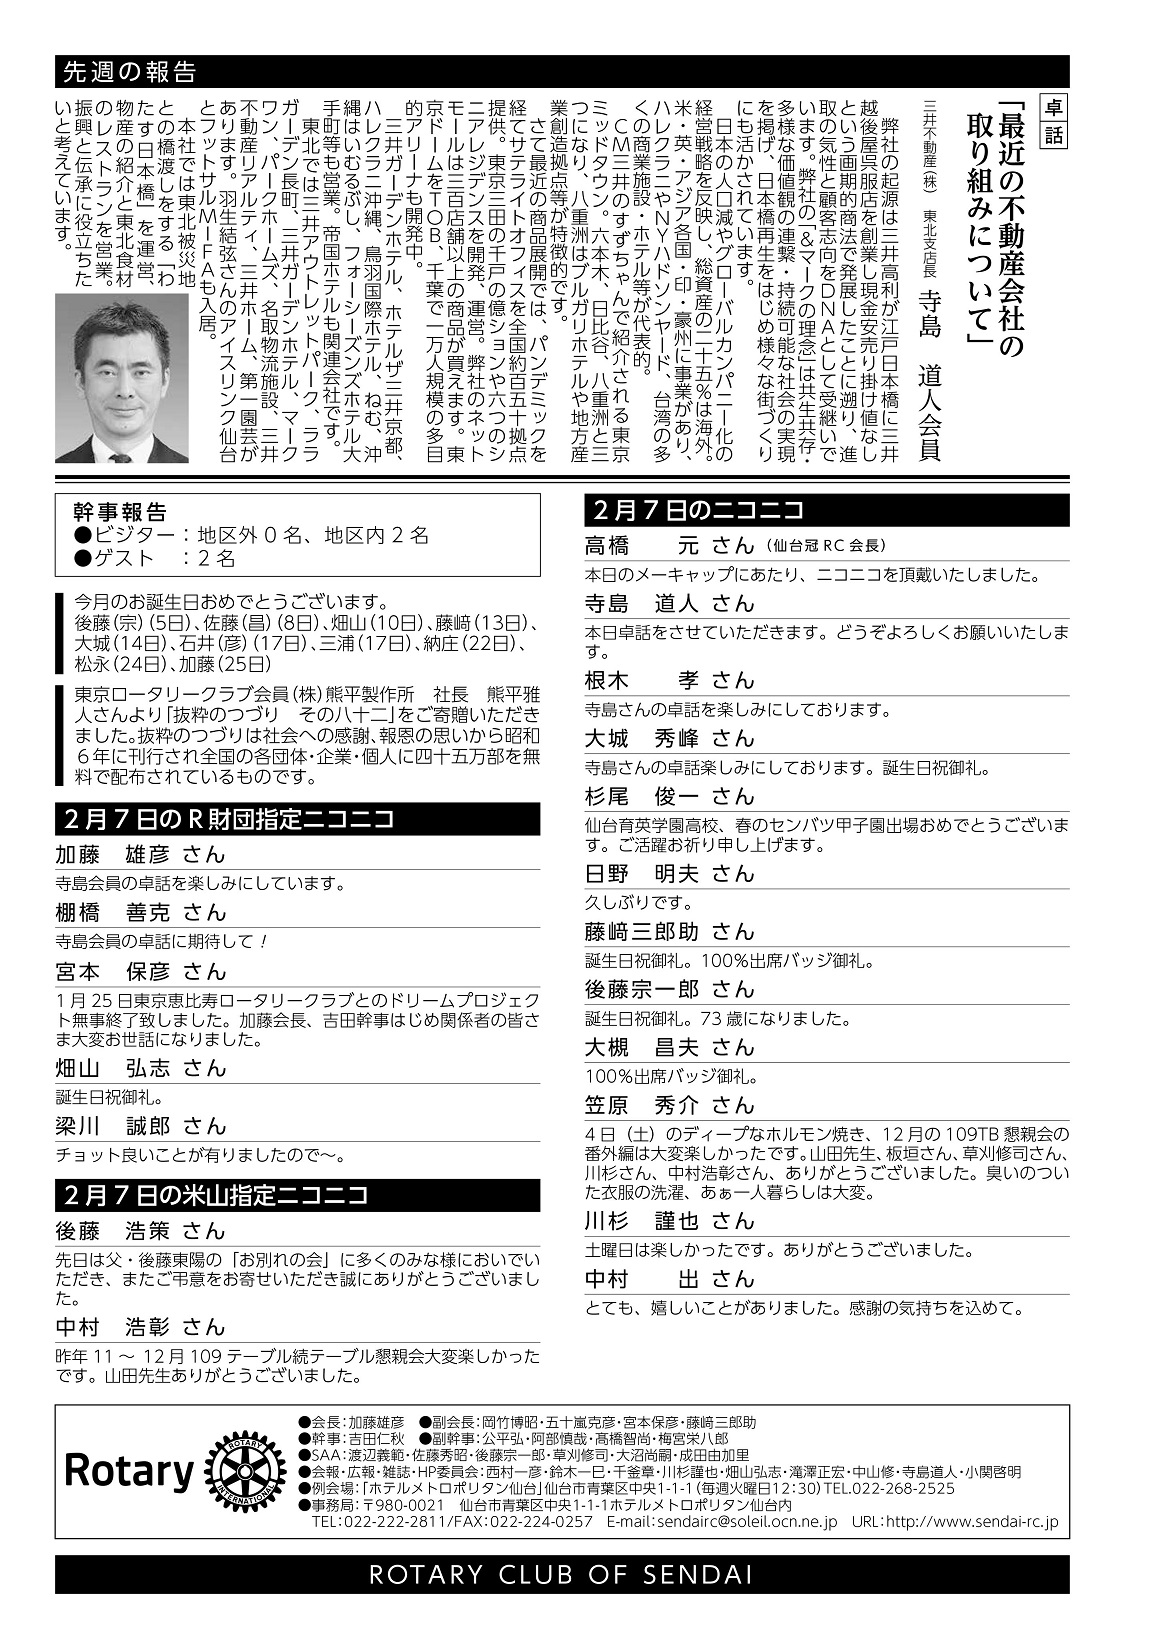 先週の報告
卓話
「最近の不動産会社の
取り組みについて」
三井不動産(株) 東北支店長 寺島 道人会員
弊社の起源は三井高利が江戸日本橋に三井
越後屋呉服店を創業し現金安売り掛け値なし
という画期的商法で発展したことに遡り、進
取の気性と顧客志向をDNAとして受継いで
います。弊社の「&マークの理念」は共生共存・
多様な価値観の連繋・持続可能な社会の実現
を掲げ、日本橋再生をはじめ様々な街づくり
にも活かされています。
日本の人口減やグローバルカンパニー化の
経営戦略を反映し、総資産の二十五%は海外。
米・英・アジア各国・印・豪州に事業があり、
ハレクラニやNYハドソンヤード、台湾の多
くの商業施設・ホテル等が代表的。
CM三井のすずちゃんで紹介される東京
ミッドタウン。六本木、日比谷、八重洲と三
つになり、八重洲はブルガリホテルや地方産
業創造拠点等が特徴的です。
さて最近の商品展開では、パンデミックを
経てサテライトオフィスを全国約百五十拠点
提供。東京三田の千戸の億ションや六つのシ
ニアレジデンスを開発、運営。弊社のネット
モールは三百店舗以上の商品が買えます。東
京ドームをTOB、千葉で一万人規模の多目
的アリーナも開発中。
三井ガーデンホテル、ホテルザ三井京都、
ハレクラニ沖縄、鳥羽国際ホテル、ねむ、沖
縄はいむるぶし、フォーシーズンズホテル大
手町等も営業。帝国ホテルも関連会社です。
東北では三井アウトレットパーク、ララ
ガーデン長町、三井ガーデンホテル、マーク
ワン、パークホームズ、名取物流施設、三井
不動産リアルティ、三井ホーム、第一園芸が
あります。羽生結弦さんのアイスリンク仙台
とフットサルMIFAも入居。
本社では東北被災地
との橋渡しをする「わ
たす日本橋」を運営、
物産の紹介と東北食材
のレストランを営業。
振興と伝承に役立ちた
いと考えています。
幹事報告
●ビジター:地区外0名、地区内2名
●ゲスト :2名
今月のお誕生日おめでとうございます。
後藤(宗)(5日)、佐藤(昌)(8日)、畑山(10日)、藤﨑(13日)、
大城(14日)、石井(彦)(17日)、三浦(17日)、納庄(22日)、
松永(24日)、加藤(25日)
東京ロータリークラブ会員(株)熊平製作所 社長 熊平雅
人さんより「抜粋のつづり その八十二」をご寄贈いただき
ました。抜粋のつづりは社会への感謝、報恩の思いから昭和
6年に刊行され全国の各団体・企業・個人に四十五万部を無
料で配布されているものです。
2月7日のR財団指定ニコニコ
加藤 雄彦 さん
寺島会員の卓話を楽しみにしています。
棚橋 善克 さん
寺島会員の卓話に期待して!
宮本 保彦 さん
1月25日東京恵比寿ロータリークラブとのドリームプロジェク
ト無事終了致しました。加藤会長、吉田幹事はじめ関係者の皆さ
ま大変お世話になりました。
畑山 弘志 さん
誕生日祝御礼。
梁川 誠郎 さん
チョット良いことが有りましたので〜。
2月7日の米山指定ニコニコ
後藤 浩策 さん
先日は父・後藤東陽の「お別れの会」に多くのみな様においでい
ただき、またご弔意をお寄せいただき誠にありがとうございまし
た。
中村 浩彰 さん
昨年11〜12月109テーブル続テーブル懇親会大変楽しかった
です。山田先生ありがとうございました。
2月7日のニコニコ
高橋 元 さん(仙台冠RC会長)
本日のメーキャップにあたり、ニコニコを頂戴いたしました。
寺島 道人 さん
本日卓話をさせていただきます。どうぞよろしくお願いいたしま
す。
根木 孝 さん
寺島さんの卓話を楽しみにしております。
大城 秀峰 さん
寺島さんの卓話楽しみにしております。誕生日祝御礼。
杉尾 俊一 さん
仙台育英学園高校、春のセンバツ甲子園出場おめでとうございま
す。ご活躍お祈り申し上げます。
日野 明夫 さん
久しぶりです。
藤﨑三郎助 さん
誕生日祝御礼。100%出席バッジ御礼。
後藤宗一郎 さん
誕生日祝御礼。73歳になりました。
大槻 昌夫 さん
100%出席バッジ御礼。
笠原 秀介 さん
4日(土)のディープなホルモン焼き、12月の109TB懇親会の
番外編は大変楽しかったです。山田先生、板垣さん、草刈修司さん、
川杉さん、中村浩彰さん、ありがとうございました。臭いのつい
た衣服の洗濯、あぁ一人暮らしは大変。
川杉 謹也 さん
土曜日は楽しかったです。ありがとうございました。
中村 出 さん
とても、嬉しいことがありました。感謝の気持ちを込めて。
Rotary
ROTARY INTERNATIONAL
●会長:加藤雄彦 ●副会長:岡竹博昭・五十嵐克彦・宮本保彦・藤﨑三郎助
●幹事:吉田仁秋 ●副幹事:公平弘・阿部慎哉・髙橋智尚・梅宮栄八郎
●SAA:渡辺義範・佐藤秀昭・後藤宗一郎・草刈修司・大沼尚嗣・成田由加里
●会報・広報・雑誌・HP委員会:西村一彦・鈴木一巳・千釜章・川杉謹也・畑山弘志・滝澤正宏・中山修・寺島道人・小関啓明
●例会場:「ホテルメトロポリタン仙台」仙台市青葉区中央1-1-1(毎週火曜日12:30)TEL.022-268-2525
●事務局:〒980-0021 仙台市青葉区中央1-1-1ホテルメトロポリタン仙台内
TEL:022-222-2811/FAX:022-224-0257 E-mail:sendairc@soleil.ocn.ne.jp URL:http://www.sendai-rc.jp
ROTARY CLUB OF SENDAI